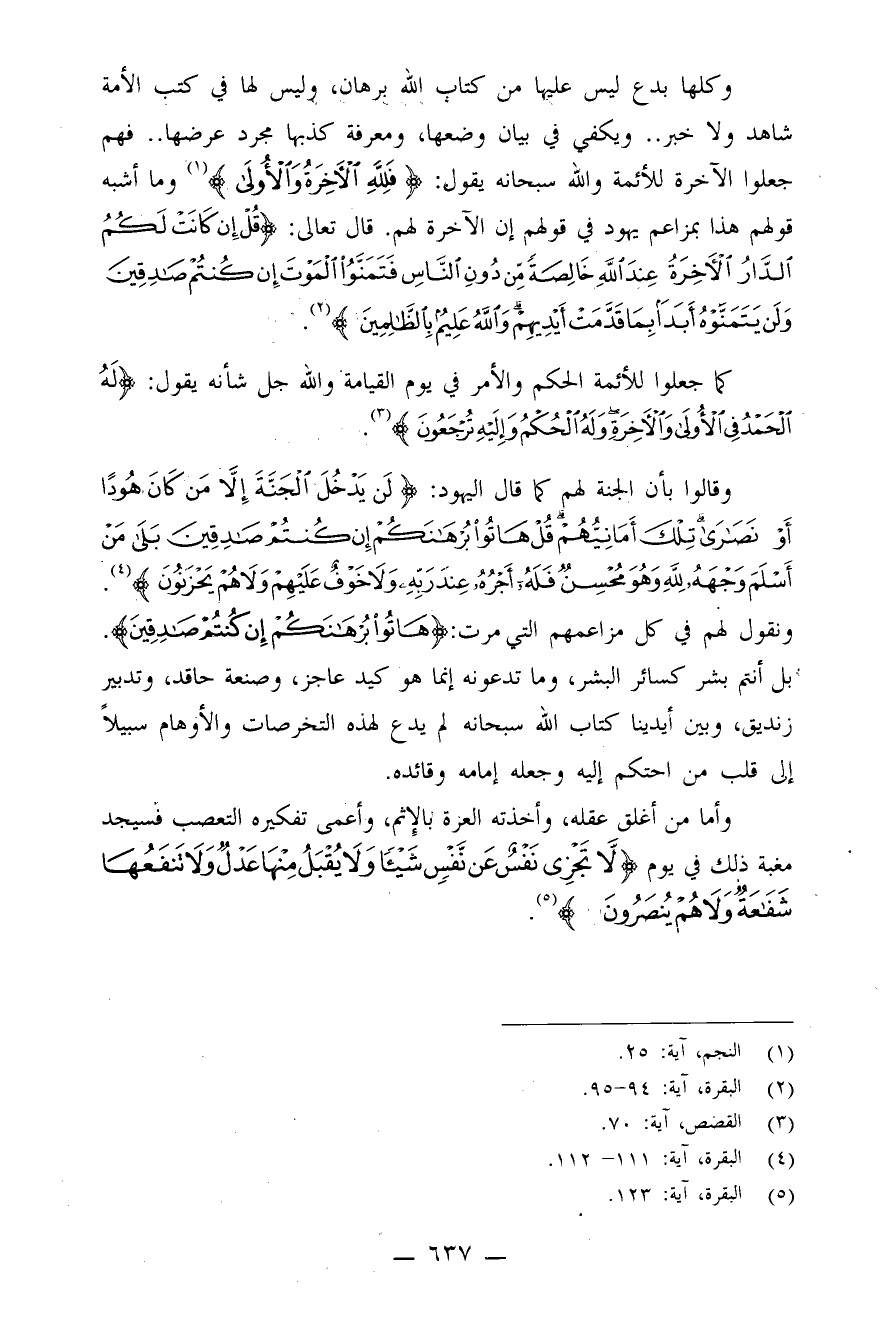 وكلها بدع ليس عليها من كتاب الله برهان، وليس لها في كتب الأمة
شاهد ولا خبر.. ويكفي في بيان وضعها، ومعرفة كذبها مجرد عرضها.. فهم
جعلوا الآخرة للأئمة والله سبحانه يقول: ﴿ فَلِلَّهِ ٱلْآخِرَةُ وَٱلْأُولَىٰ ﴾(١) وما أشبه
قولهم هذا بمزاعم يهود في قولهم إن الآخرة لهم. قال تعالى: ﴿قُلْ إِن كَانَتْ لَكُمُ
ٱلدَّارُ ٱلْآخِرَةُ عِندَ ٱللَّهِ خَالِصَةً مِّن دُونِ ٱلنَّاسِ فَتَمَنَّوُا۟ ٱلْمَوْتَ إِن كُنتُمْ صَـٰدِقِينَ
وَلَن يَتَمَنَّوْهُ أَبَدًۢا بِمَا قَدَّمَتْ أَيْدِيهِمْ ۗ وَٱللَّهُ عَلِيمٌۢ بِٱلظَّـٰلِمِينَ ﴾(٢).
كما جعلوا للأئمة الحكم والأمر في يوم القيامة والله جل شأنه يقول: ﴿لَهُ
ٱلْحَمْدُ فِى ٱلْأُولَىٰ وَٱلْآخِرَةِ ۖ وَلَهُ ٱلْحُكْمُ وَإِلَيْهِ تُرْجَعُونَ ﴾(٣).
وقالوا بأن الجنة لهم كما قال اليهود: ﴿ لَن يَدْخُلَ ٱلْجَنَّةَ إِلَّا مَن كَانَ هُودًا
أَوْ نَصَـٰرَىٰ ۗ تِلْكَ أَمَانِيُّهُمْ ۗ قُلْ هَاتُوا۟ بُرْهَـٰنَكُمْ إِن كُنتُمْ صَـٰدِقِينَ بَلَىٰ مَنْ
أَسْلَمَ وَجْهَهُۥ لِلَّهِ وَهُوَ مُحْسِنٌ فَلَهُۥٓ أَجْرُهُۥ عِندَ رَبِّهِۦ وَلَا خَوْفٌ عَلَيْهِمْ وَلَا هُمْ يَحْزَنُونَ ﴾(٤).
ونقول لهم في كل مزاعمهم التي مرت: ﴿هَاتُوا۟ بُرْهَـٰنَكُمْ إِن كُنتُمْ صَـٰدِقِينَ﴾.
بل أنتم بشر كسائر البشر، وما تدعونه إنما هو كيد عاجز، وصنعة حاقد، وتدبير
زنديق، وبين أيدينا كتاب الله سبحانه لم يدع لهذه التخرصات والأوهام سبيلاً
إلى قلب من احتكم إليه وجعله إمامه وقائده.
وأما من أغلق عقله، وأخذته العزة بالإثم، وأعمى تفكيره التعصب فسيجد
مغبة ذلك في يوم ﴿ لَّا تَجْزِى نَفْسٌ عَن نَّفْسٍ شَيْـًٔا وَلَا يُقْبَلُ مِنْهَا عَدْلٌ وَلَا تَنفَعُهَا
شَفَـٰعَةٌ وَلَا هُمْ يُنصَرُونَ ﴾(٥).
(١) النجم، آية: ٢٥.
(٢) البقرة، آية: ٩٤–٩٥.
(٣) القصص، آية: ٧٠.
(٤) البقرة، آية: ١١١– ١١٢.
(٥) البقرة، آية: ١٢٣.
— ٦٣٧ —